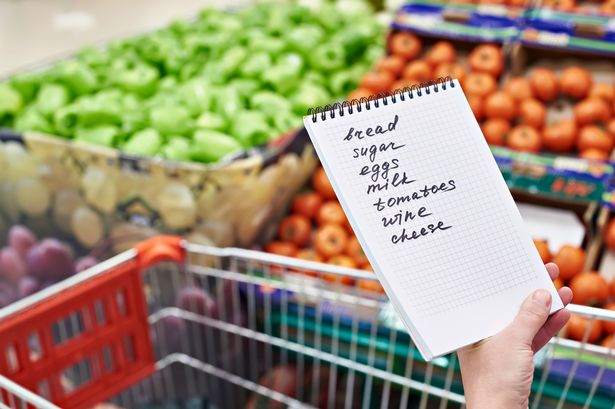 bread
sugar
eggs
milk
tomatoes
wine
cheese